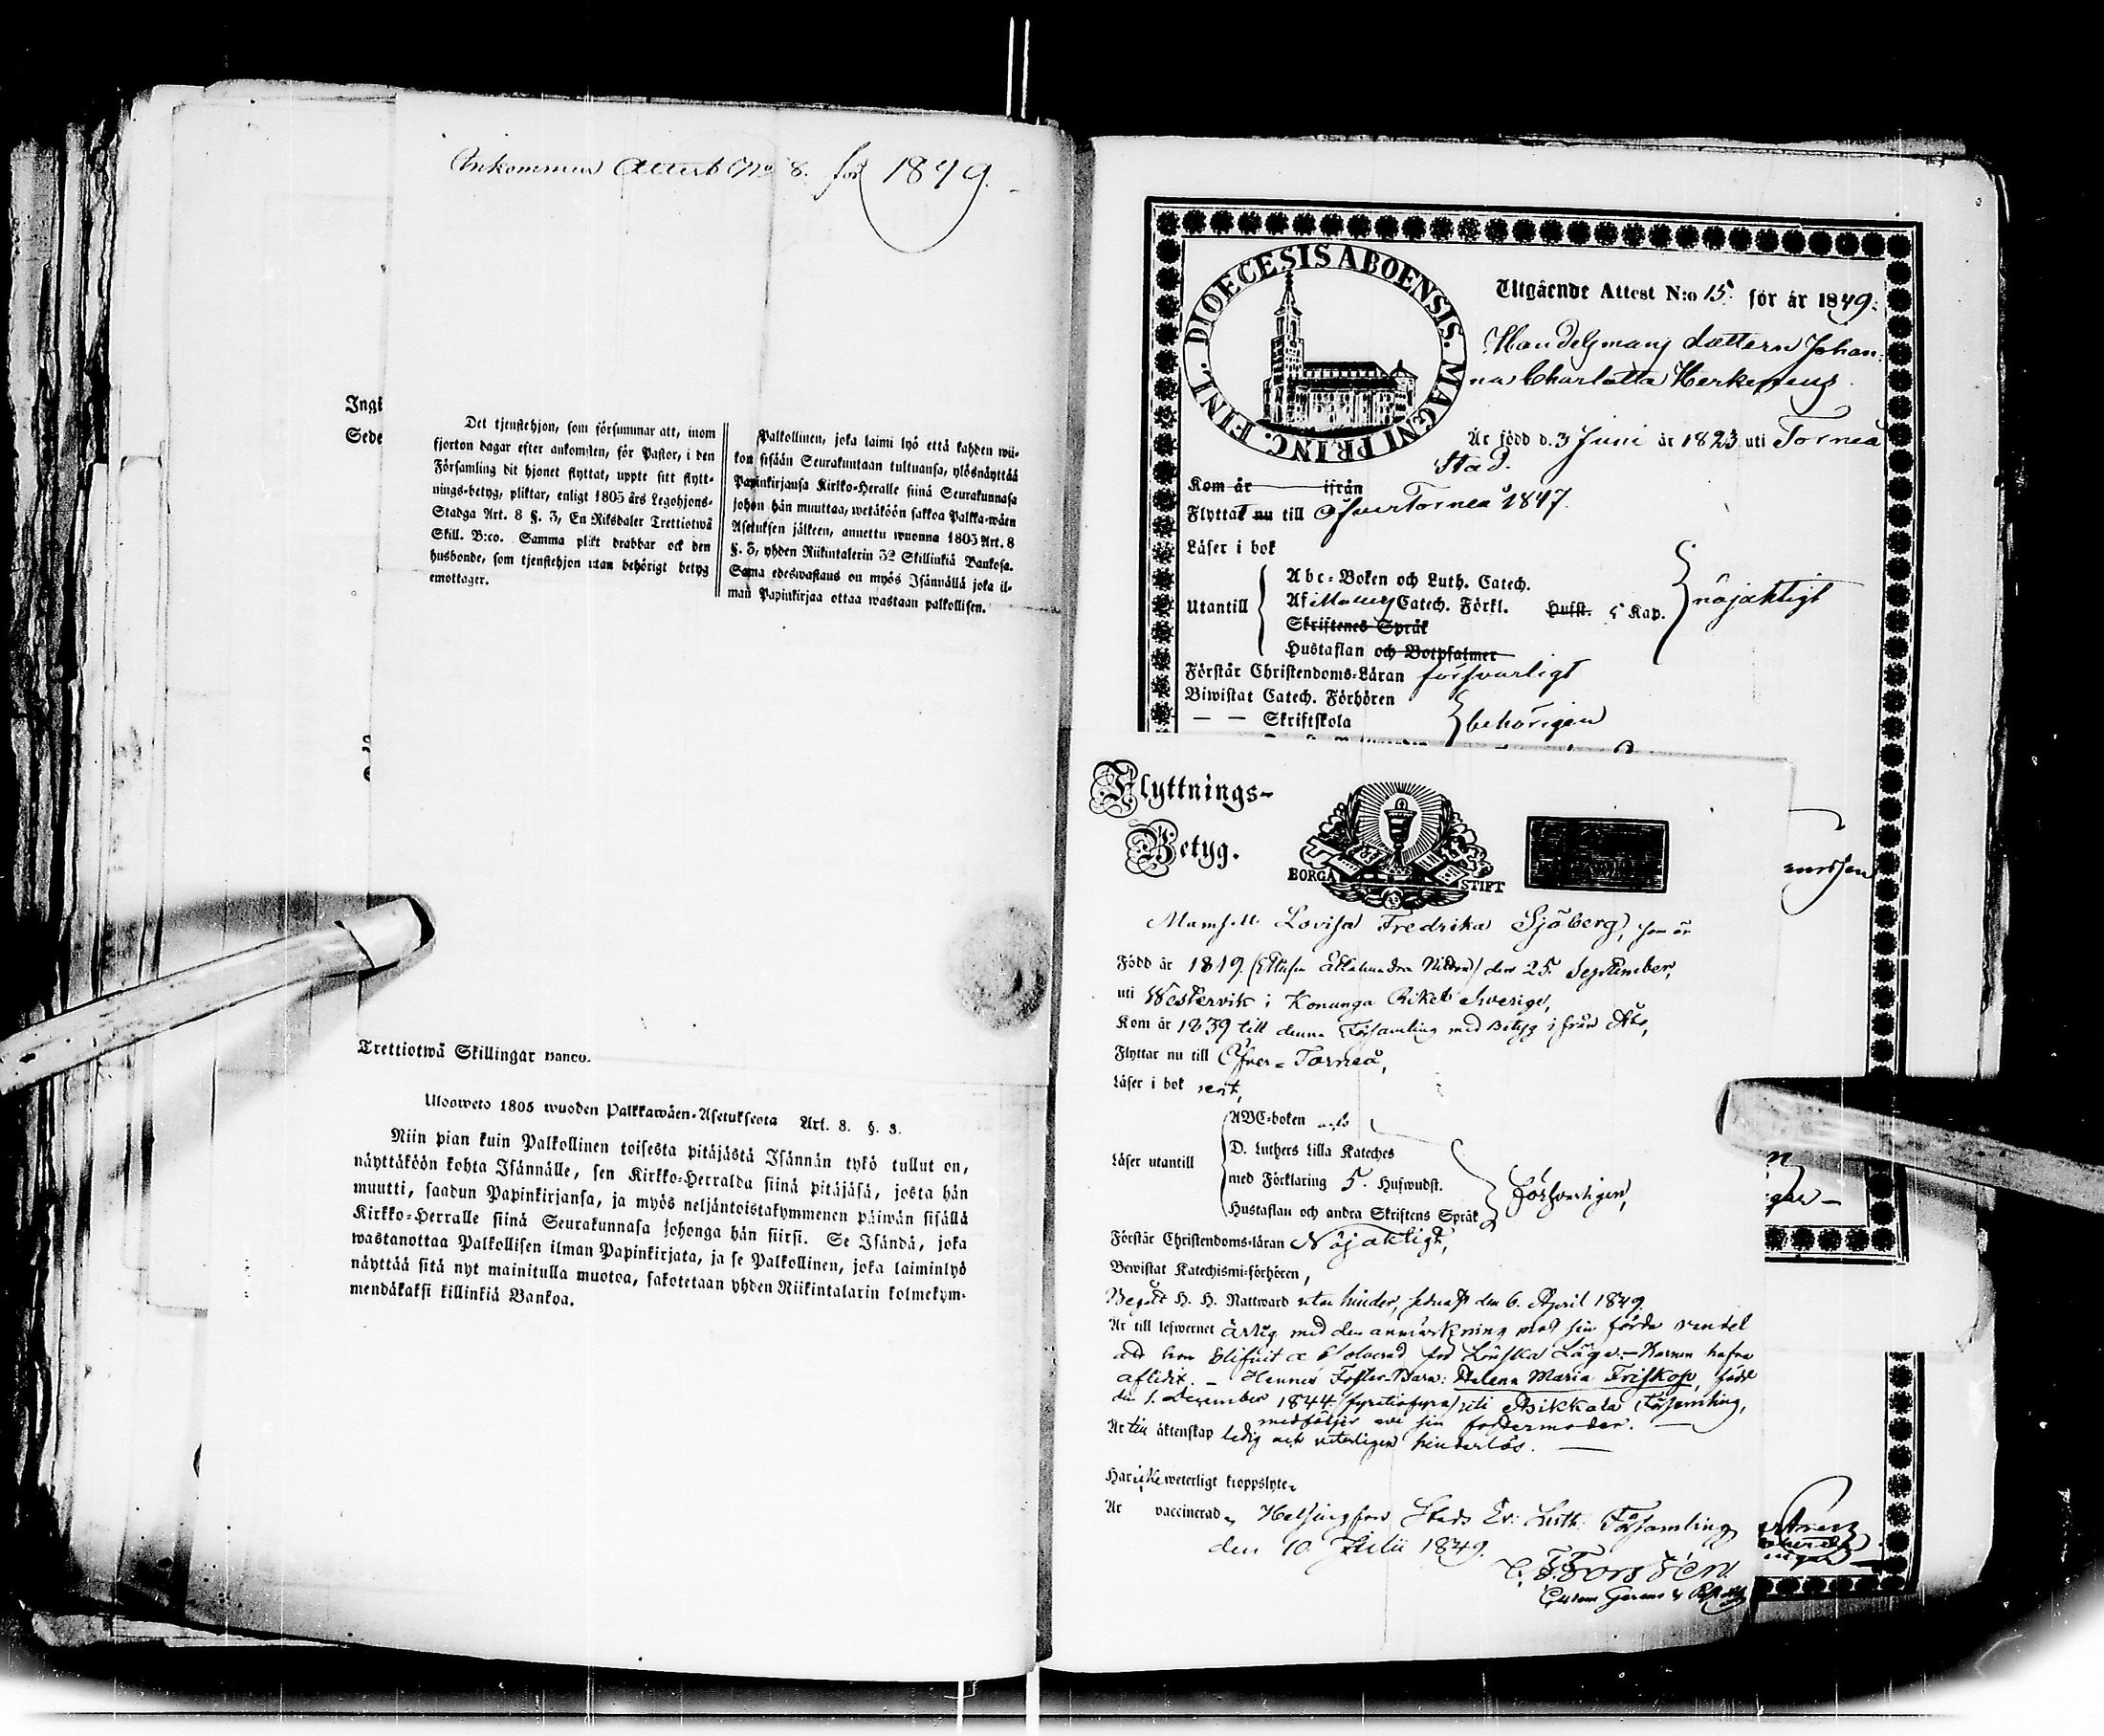 Ankommen Attest No 8. för 1849.
Ingi
Sede
Det tjenstehjon, som försummar att, inom
fjorton dagar efter ankomsten, för Pastor, i den
Församling dit hjonet flyttat, uppte sitt flytt-
nings-betyg, pliktar, enligt 1805 års Legohjons-
Stadga Art. 8 §. 3, En Riksdaler Trettiotwå
Skill. B:co. Samma plikt drabbar ock den
husbonde, som tjenstehjon utan behörigt betyg
emottager.
Palkollinen, joka laimi lyö että kahden wii-
kon sisään Seurakuntaan tultuansa, ylösnäyttää
Papinkirjansa Kirkko-Heralle siinä Seurakunnasa
johon hän muuttaa, wetäköön sakkoa Palkka-wäen
Asetuksen jälkeen, annettu wuonna 1805 Art. 8
§. 3, yhden Riikintalerin 32 Skillinkiä Bankosa.
Sama edeswastaus on myös Isännällä joka il-
man Papinkirjaa ottaa wastaan palkollisen.
Trettiotwå Skillingar Banco.
Ulosweto 1805 wuoden Palkkawäen-Asetuksesta Art. 8. §. 3.
Niin pian kuin Palkollinen toisesta pitäjästä Isännän tykö tullut on,
näyttäköön kohta Isännälle, sen Kirkko-Herralda siinä pitäjäsä, josta hän
muutti, saadun Papinkirjansa, ja myös neljäntoistakymmenen päiwän sisällä
Kirkko-Herralle siinä Seurakunnasa johonga hän siirsi. Se Isändä, joka
wastanottaa Palkollisen ilman Papinkirjata, ja se Palkollinen, joka laiminlyö
näyttää sitä nyt mainitulla muotoa, sakotetaan yhden Riikintalarin kolmekym-
mendäkaksi killinkiä Bankoa.
DIOECESIS ABOENSIS. MAGNI PRINC. FINL.
Utgående Attest N:o 15. för år 1849.
Handelsmans dottern Johan-
na Charlotta
Är född d. 3 Juni år 1823 uti Torneå
Stad.
Kom år ifrån
Flyttat nu till Öfver Torneå 1847.
Läser i bok
Utantill
Abc-Boken och Luth. Catech.
Af Catech. Förkl. Hufst. 5 Kap.
Skriftenes Språk
Hustaflan och Botpsalmer
nöjaktigt
Förstår Christendoms-Läran försvarligt
Biwistat Catech. Förhören
— — Skriftskola
behörigen
Flyttnings-
Betyg.
BORGÅ STIFT
Mamsell Lovisa Fredrika Sjöberg, som är
Född år 1819. (Ettusen Ettahundra Nitton) den 25. September,
uti Westervik i Konunga Riket Sverige,
Kom år 1839 till denna Församling med Betyg ifrån Åbo,
Flyttar nu till Öfver-Torneå,
Läser i bok rent,
Läser utantill
ABC-boken och
D. Luthers Lilla Kateches
med Förklaring 5. Hufwudst.
Hustaflan och andra Skriftens Språk
försvarligen,
Förstår Christendoms-läran Nöjaktligt,
Bewistat Katechismi-förhören,
Begått H. H. Nattward utan hinder, sednast den 6. April 1849.
Är till lefwernet ärlig med den anmärkning mot sin förda vandel
att hon blifvit absolverad för Lönska Läge. — Barnen hafva
aflidit. — Hennes Foster-Barn: Helena Maria Friskop, född
den 1. December 1844 (fyratiofyra) uti Bikkala Församling,
medföljer nu sin fostermoder. —
Är till äktenskap ledig och veterligen hinderlös. —
Har icke weterligt kroppslyte,
Är vaccinerad, Helsingfors Stads Ev. Luth. Församling
den 10. Julii 1849.